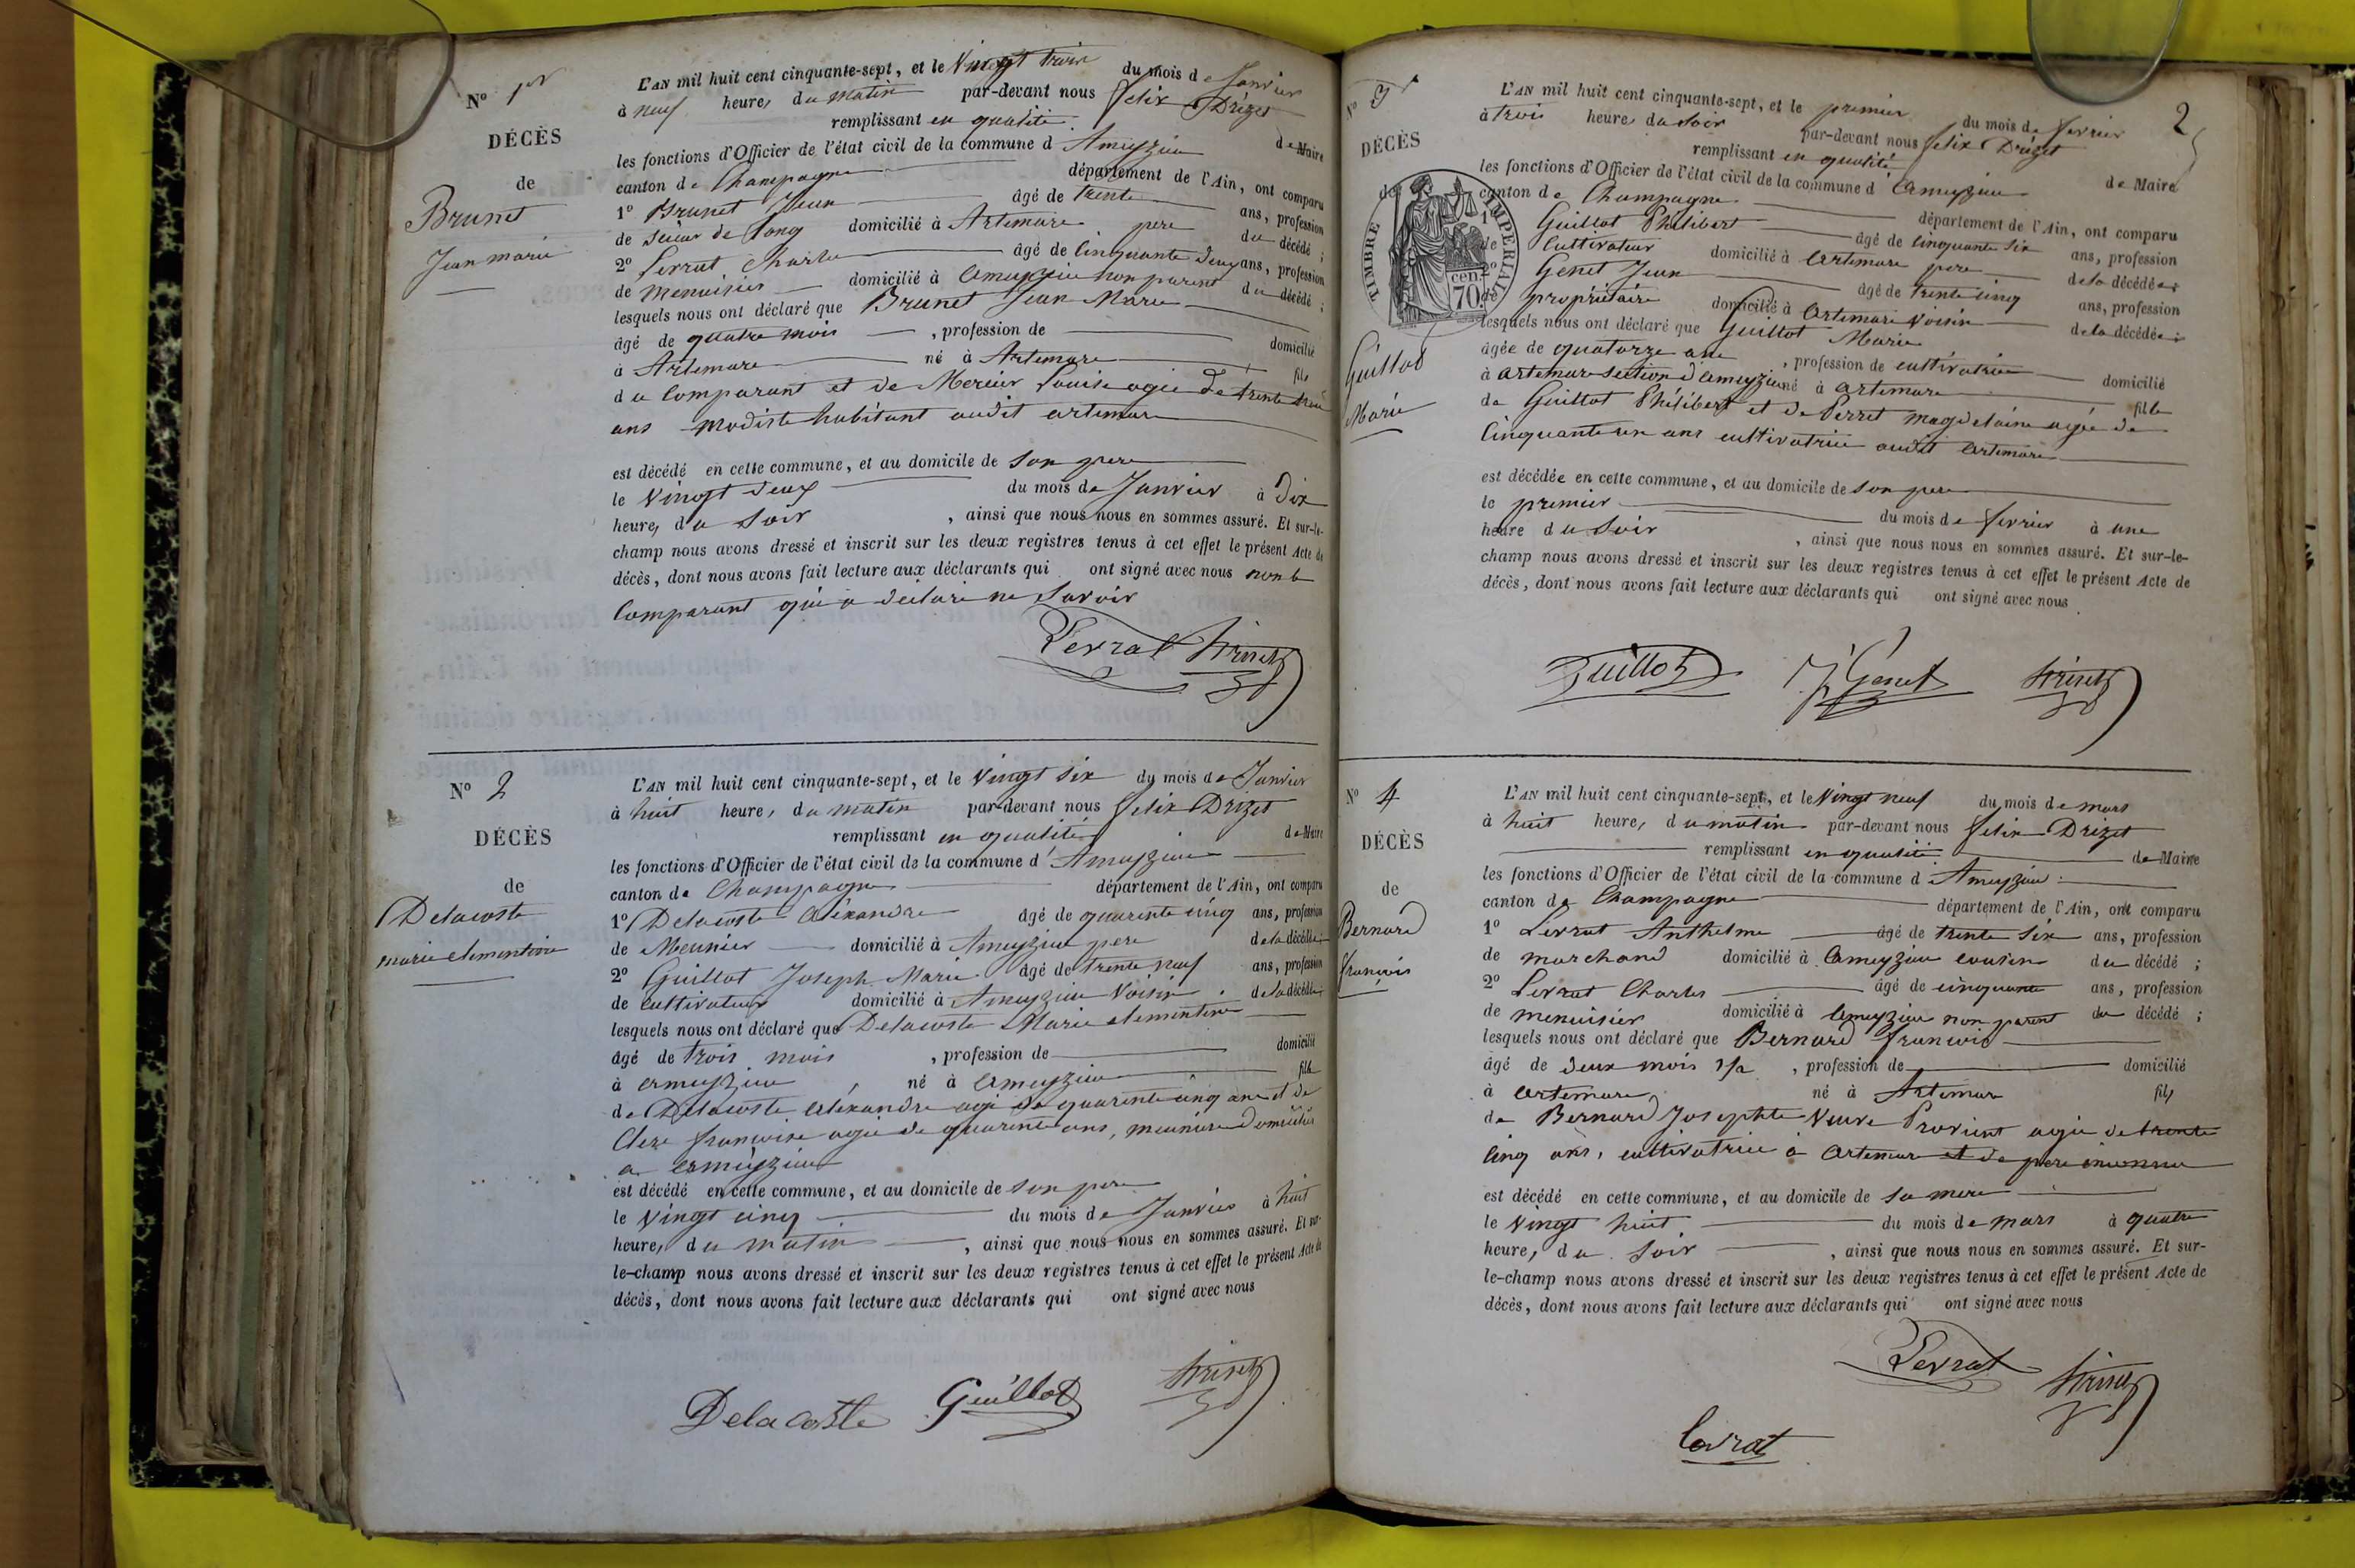 N° 1er
DÉCÈS
de
Brunet
Jean marie
L'AN mil huit cent cinquante-sept, et le Vingt trois du mois de Janvier
à neuf heures du matin par-devant nous Felix Drizet
remplissant en qualité de Maire
les fonctions d'Officier de l'état civil de la commune d'Ameyzieu
canton de Champagne département de l'Ain, ont comparu
1° Brunet Jean âgé de trente ans, profession
de scieur de long domicilié à Artemare pere du décédé ;
2° Serrat Charles âgé de Cinquante deux ans, profession
de menuisier domicilié à Ameyzieu non parent du décédé ;
lesquels nous ont déclaré que Brunet Jean Marie
âgé de quatre mois , profession de domicilié
à Artemare né à Artemare fils
du Comparant et de Mercier Louise agée de trente trois
ans modiste habitant audit artemare
est décédé en cette commune, et au domicile de son pere
le Vingt deux du mois de Janvier à Dix
heures du Soir , ainsi que nous nous en sommes assuré. Et sur-le-
champ nous avons dressé et inscrit sur les deux registres tenus à cet effet le présent Acte de
décès, dont nous avons fait lecture aux déclarants qui ont signé avec nous non le
Comparant qui a déclaré ne Savoir
Serrat Drizet
N° 2
DÉCÈS
de
Delacoste
marie clementine
L'AN mil huit cent cinquante-sept, et le Vingt six du mois de Janvier
à huit heures du matin par-devant nous Felix Drizet
remplissant en qualité de Maire
les fonctions d'Officier de l'état civil de la commune d'Ameyzieu
canton de Champagne département de l'Ain, ont comparu
1° Delacoste Aléxandre âgé de quarente cinq ans, profession
de Meunier domicilié à Ameyzieu pere de la décédée
2° Guillot Joseph Marie âgé de trente neuf ans, profession
de cultivateur domicilié à Ameyzieu Voisin de la décédée
lesquels nous ont déclaré que Delacoste Marie clementine
âgé de trois mois , profession de domicilié
à Ameyzieu , né à Ameyzieu fille
de Delacoste Aléxandre agé de quarente cinq ans et de
Clerc francoise agée de quarente ans, meunière domiciliés
a Ameyzieu
est décédé en cette commune, et au domicile de son pere
le Vingt cinq du mois de Janvier à huit
heures du matin , ainsi que nous nous en sommes assuré. Et sur-
le-champ nous avons dressé et inscrit sur les deux registres tenus à cet effet le présent Acte de
décès, dont nous avons fait lecture aux déclarants qui ont signé avec nous
Delacoste Guillot Drizet
2
N° 3
DÉCÈS
de
TIMBRE IMPERIAL
70 cen.
Guillot
Marie
L'AN mil huit cent cinquante-sept, et le premier du mois de fevrier
à trois heures du soir par-devant nous felix Drizet
remplissant en qualité de Maire
les fonctions d'Officier de l'état civil de la commune d'Ameyzieu
canton de Champagne département de l'Ain, ont comparu
1° Guillot Philibert âgé de cinquante six ans, profession
de Cultivateur domicilié à Artemare pere de la décédée ;
2° Genet Jean âgé de trente cinq ans, profession
de propriétaire domicilié à Artemare Voisin de la décédée ;
lesquels nous ont déclaré que Guillot Marie
âgée de quatorze ans , profession de cultivatrice domicilié
à Artemare section d'Ameyzieu né à Artemare fille
de Guillot Philibert et de Perret magdelaine agée de
Cinquante un ans cultivatrice audit Artemare
est décédée en cette commune, et au domicile de son pere
le premier du mois de fevrier à une
heure du Soir , ainsi que nous nous en sommes assuré. Et sur-le-
champ nous avons dressé et inscrit sur les deux registres tenus à cet effet le présent Acte de
décès, dont nous avons fait lecture aux déclarants qui ont signé avec nous
Guillot J Genet Drizet
N° 4
DÉCÈS
de
Bernard
françois
L'AN mil huit cent cinquante-sept, et le Vingt neuf du mois de mars
à huit heures du matin par-devant nous felix Drizet
remplissant en qualité de Maire
les fonctions d'Officier de l'état civil de la commune d Ameyzieu
canton de Champagne département de l'Ain, ont comparu
1° Serrat Anthelme âgé de trente six ans, profession
de marchand domicilié à Ameyzieu cousin du décédé ;
2° Serrat Charles âgé de cinquante ans, profession
de menuisier domicilié à Ameyzieu non parent du décédé ;
lesquels nous ont déclaré que Bernard francois
âgé de deux mois 1/2 , profession de domicilié
à Artemare, né à Artemare fils
de Bernard Josephte Veuve agée de trente
cinq ans, cultivatrice à Artemare et de pere inconnu
est décédé en cette commune, et au domicile de sa mere
le Vingt huit du mois de mars à quatre
heures du Soir , ainsi que nous nous en sommes assuré. Et sur-
le-champ nous avons dressé et inscrit sur les deux registres tenus à cet effet le présent Acte de
décès, dont nous avons fait lecture aux déclarants qui ont signé avec nous
Serrat Drizet